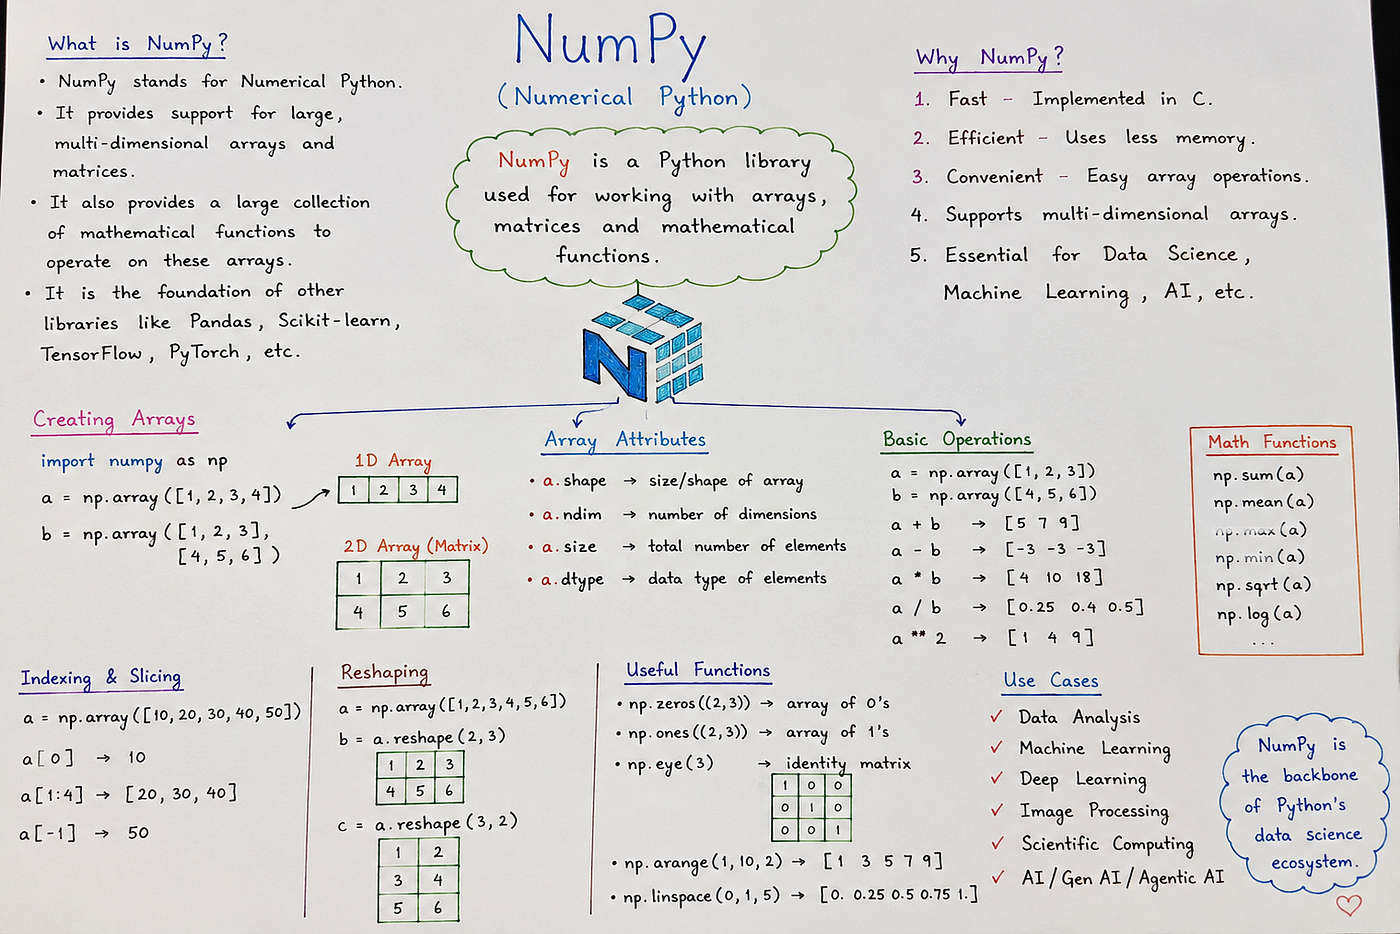 NumPy
(Numerical Python)
NumPy is a Python library
used for working with arrays,
matrices and mathematical
functions.
N
What is NumPy?
• NumPy stands for Numerical Python.
• It provides support for large,
multi-dimensional arrays and
matrices.
• It also provides a large collection
of mathematical functions to
operate on these arrays.
• It is the foundation of other
libraries like Pandas, Scikit-learn,
TensorFlow, PyTorch, etc.
Why NumPy?
1. Fast - Implemented in C.
2. Efficient - Uses less memory.
3. Convenient - Easy array operations.
4. Supports multi-dimensional arrays.
5. Essential for Data Science,
Machine Learning, AI, etc.
Creating Arrays
import numpy as np
a = np.array([1, 2, 3, 4])
b = np.array([[1, 2, 3],
[4, 5, 6])
1D Array
1 2 3 4
2D Array (Matrix)
1 2 3
4 5 6
Array Attributes
• a.shape → size/shape of array
• a.ndim → number of dimensions
• a.size → total number of elements
• a.dtype → data type of elements
Basic Operations
a = np.array([1, 2, 3])
b = np.array([4, 5, 6])
a + b → [5 7 9]
a - b → [-3 -3 -3]
a * b → [4 10 18]
a / b → [0.25 0.4 0.5]
a ** 2 → [1 4 9]
Math Functions
np.sum(a)
np.mean(a)
np.max(a)
np.min(a)
np.sqrt(a)
np.log(a)
...
Indexing & Slicing
a = np.array([10, 20, 30, 40, 50])
a[0] → 10
a[1:4] → [20, 30, 40]
a[-1] → 50
Reshaping
a = np.array([1,2,3,4,5,6])
b = a.reshape(2, 3)
1 2 3
4 5 6
c = a.reshape(3, 2)
1 2
3 4
5 6
Useful Functions
• np.zeros((2,3)) → array of 0's
• np.ones((2,3)) → array of 1's
• np.eye(3) → identity matrix
1 0 0
0 1 0
0 0 1
• np.arange(1, 10, 2) → [1 3 5 7 9]
• np.linspace(0, 1, 5) → [0. 0.25 0.5 0.75 1.]
Use Cases
✓ Data Analysis
✓ Machine Learning
✓ Deep Learning
✓ Image Processing
✓ Scientific Computing
✓ AI / Gen AI / Agentic AI
NumPy is
the backbone
of Python's
data science
ecosystem.